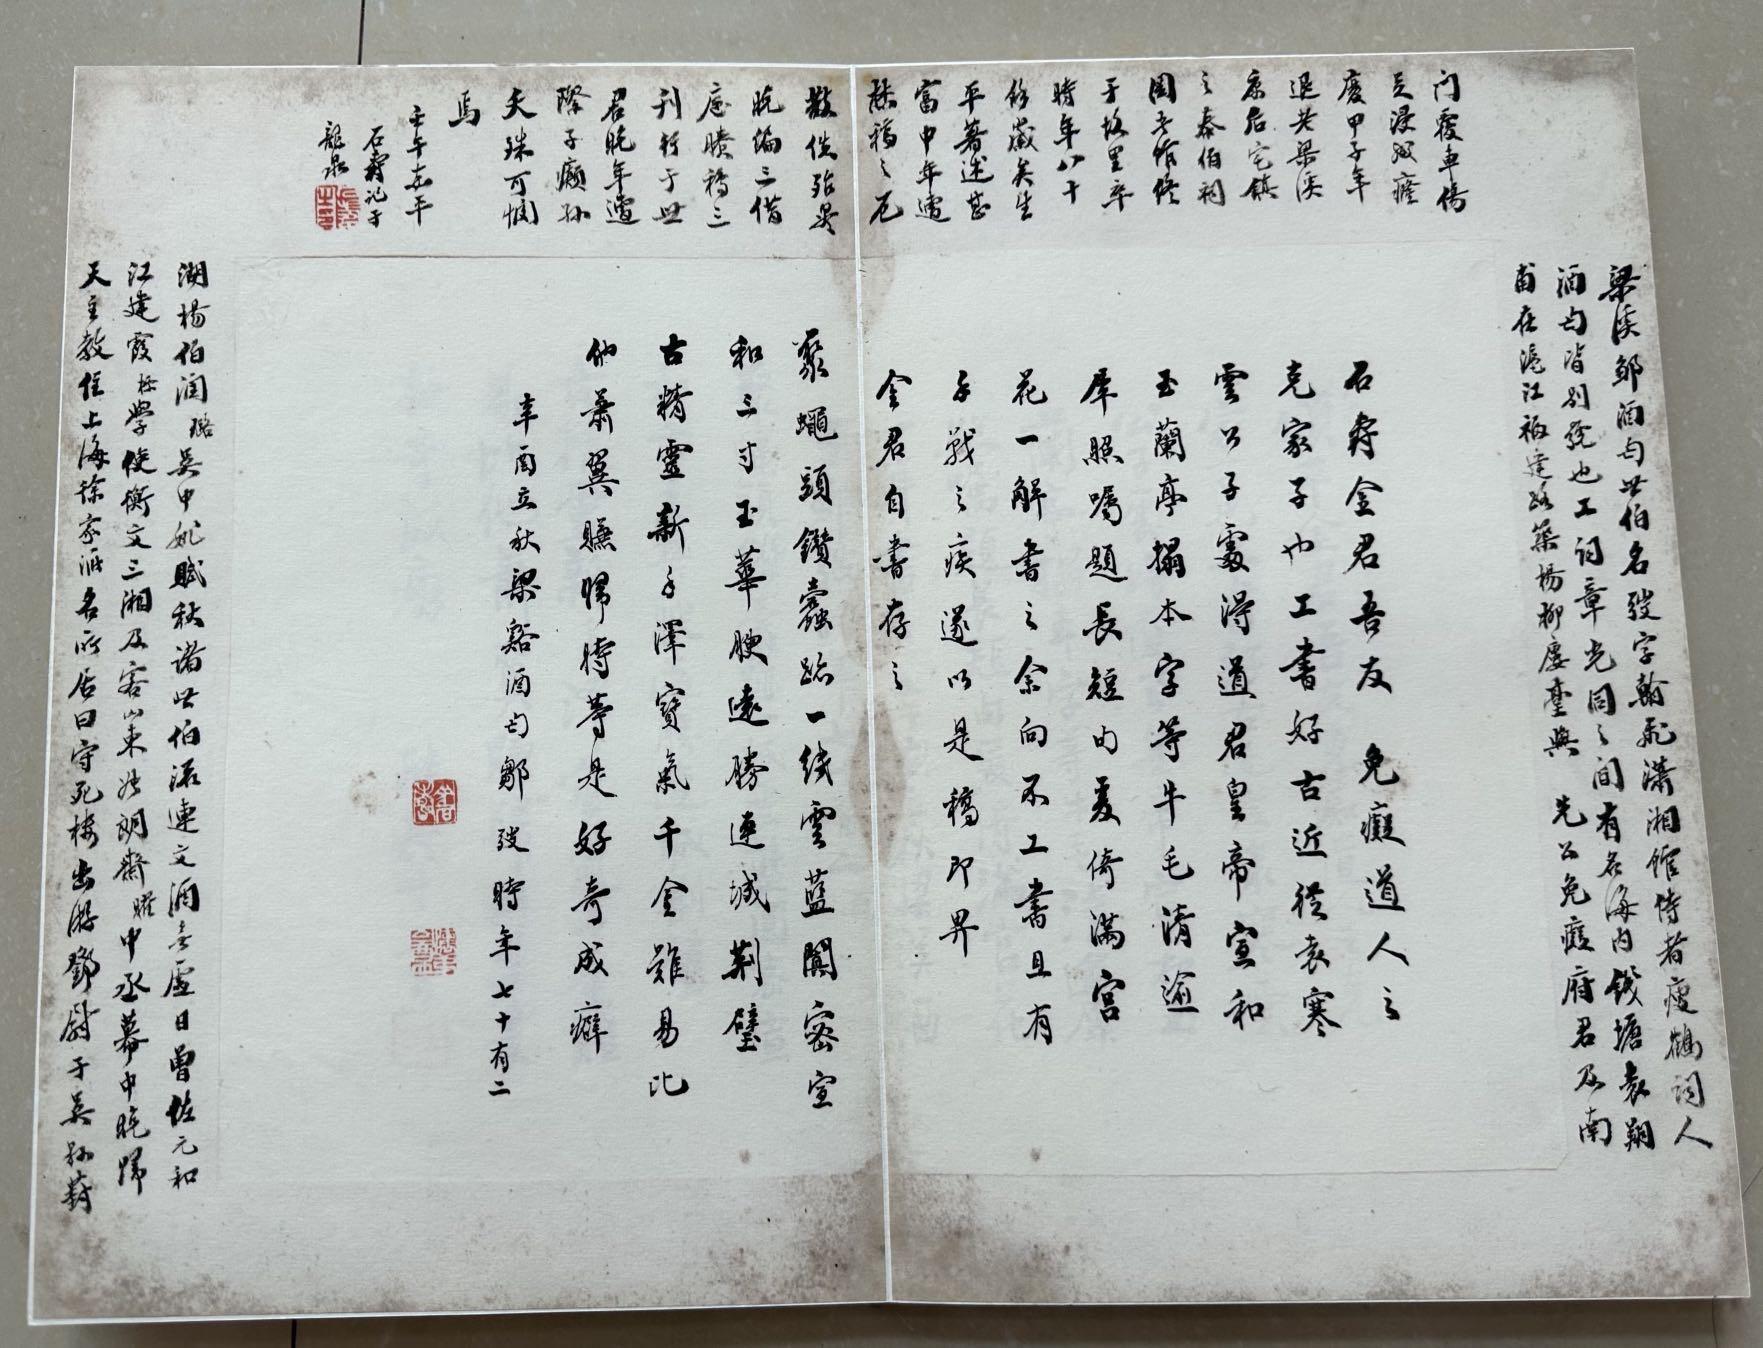 石壽金君吾友兔癡道人之
克家子也工書好古近從袁寒
雲公子處得道君皇帝宣和
玉蘭亭搨本字等牛毛清逾
犀照囑題長短句爰倚滿宫
花一解書之余向不工書且有
手戰之疾遂以是稿即畀
金君自書存之
聚蠅頭鑽蠹跡一綫雲藍闌密宣
和三寸玉華腴遠勝連城荆璧
古精靈新手澤寶氣千金難易比
他蕭翼賺歸時等是好奇成癖
辛酉立秋梁谿酒匄鄒弢時年七十有二
梁溪鄒酒匄世伯名弢字翰飛瀟湘館侍者瘦鶴詞人
酒匄皆别號也工詞章光同之間有名海内錢塘袁翔
甫在滬江福建路築楊柳廔臺與先公兔癡府君及南
湖楊伯潤璐吴中姚賦秋諸世伯流連文酒無虚日曾佐元和
江建霞標學使衡文三湘及客山東 胡齋 中丞幕中晚歸
天主教住上海徐家匯名所居曰守死樓出游鄧尉于吴 葑
门覆車傷
足浸成癃
廢甲子年
退老梁溪
原居宅鎮
之泰伯祠
因 作終
于故里卒
時年八十
餘歲矣生
平著述甚
富中年遭
祿稿之厄
散佚殆盡
晚編三借
廬賸稿三
刊行于世
君晚年遭
際子癲孫
夭殊可憫
焉
壬午 平
石壽記于
龍泉